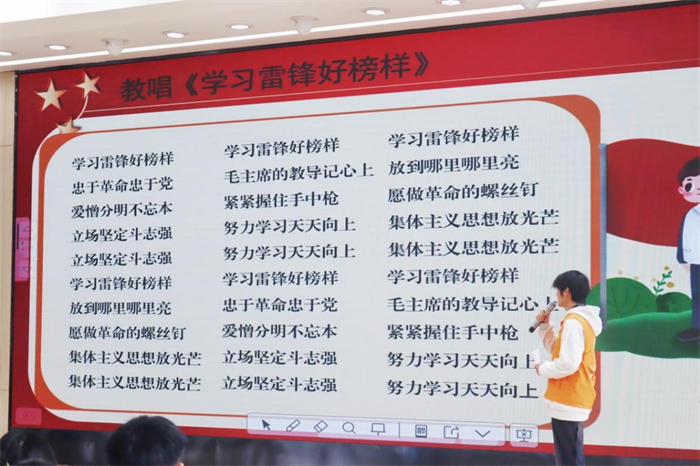 教唱《学习雷锋好榜样》
学习雷锋好榜样
忠于革命忠于党
爱憎分明不忘本
立场坚定斗志强
立场坚定斗志强
学习雷锋好榜样
放到哪里哪里亮
愿做革命的螺丝钉
集体主义思想放光芒
集体主义思想放光芒
学习雷锋好榜样
毛主席的教导记心上
紧紧握住手中枪
努力学习天天向上
努力学习天天向上
学习雷锋好榜样
忠于革命忠于党
爱憎分明不忘本
立场坚定斗志强
立场坚定斗志强
学习雷锋好榜样
放到哪里哪里亮
愿做革命的螺丝钉
集体主义思想放光芒
集体主义思想放光芒
学习雷锋好榜样
毛主席的教导记心上
紧紧握住手中枪
努力学习天天向上
努力学习天天向上